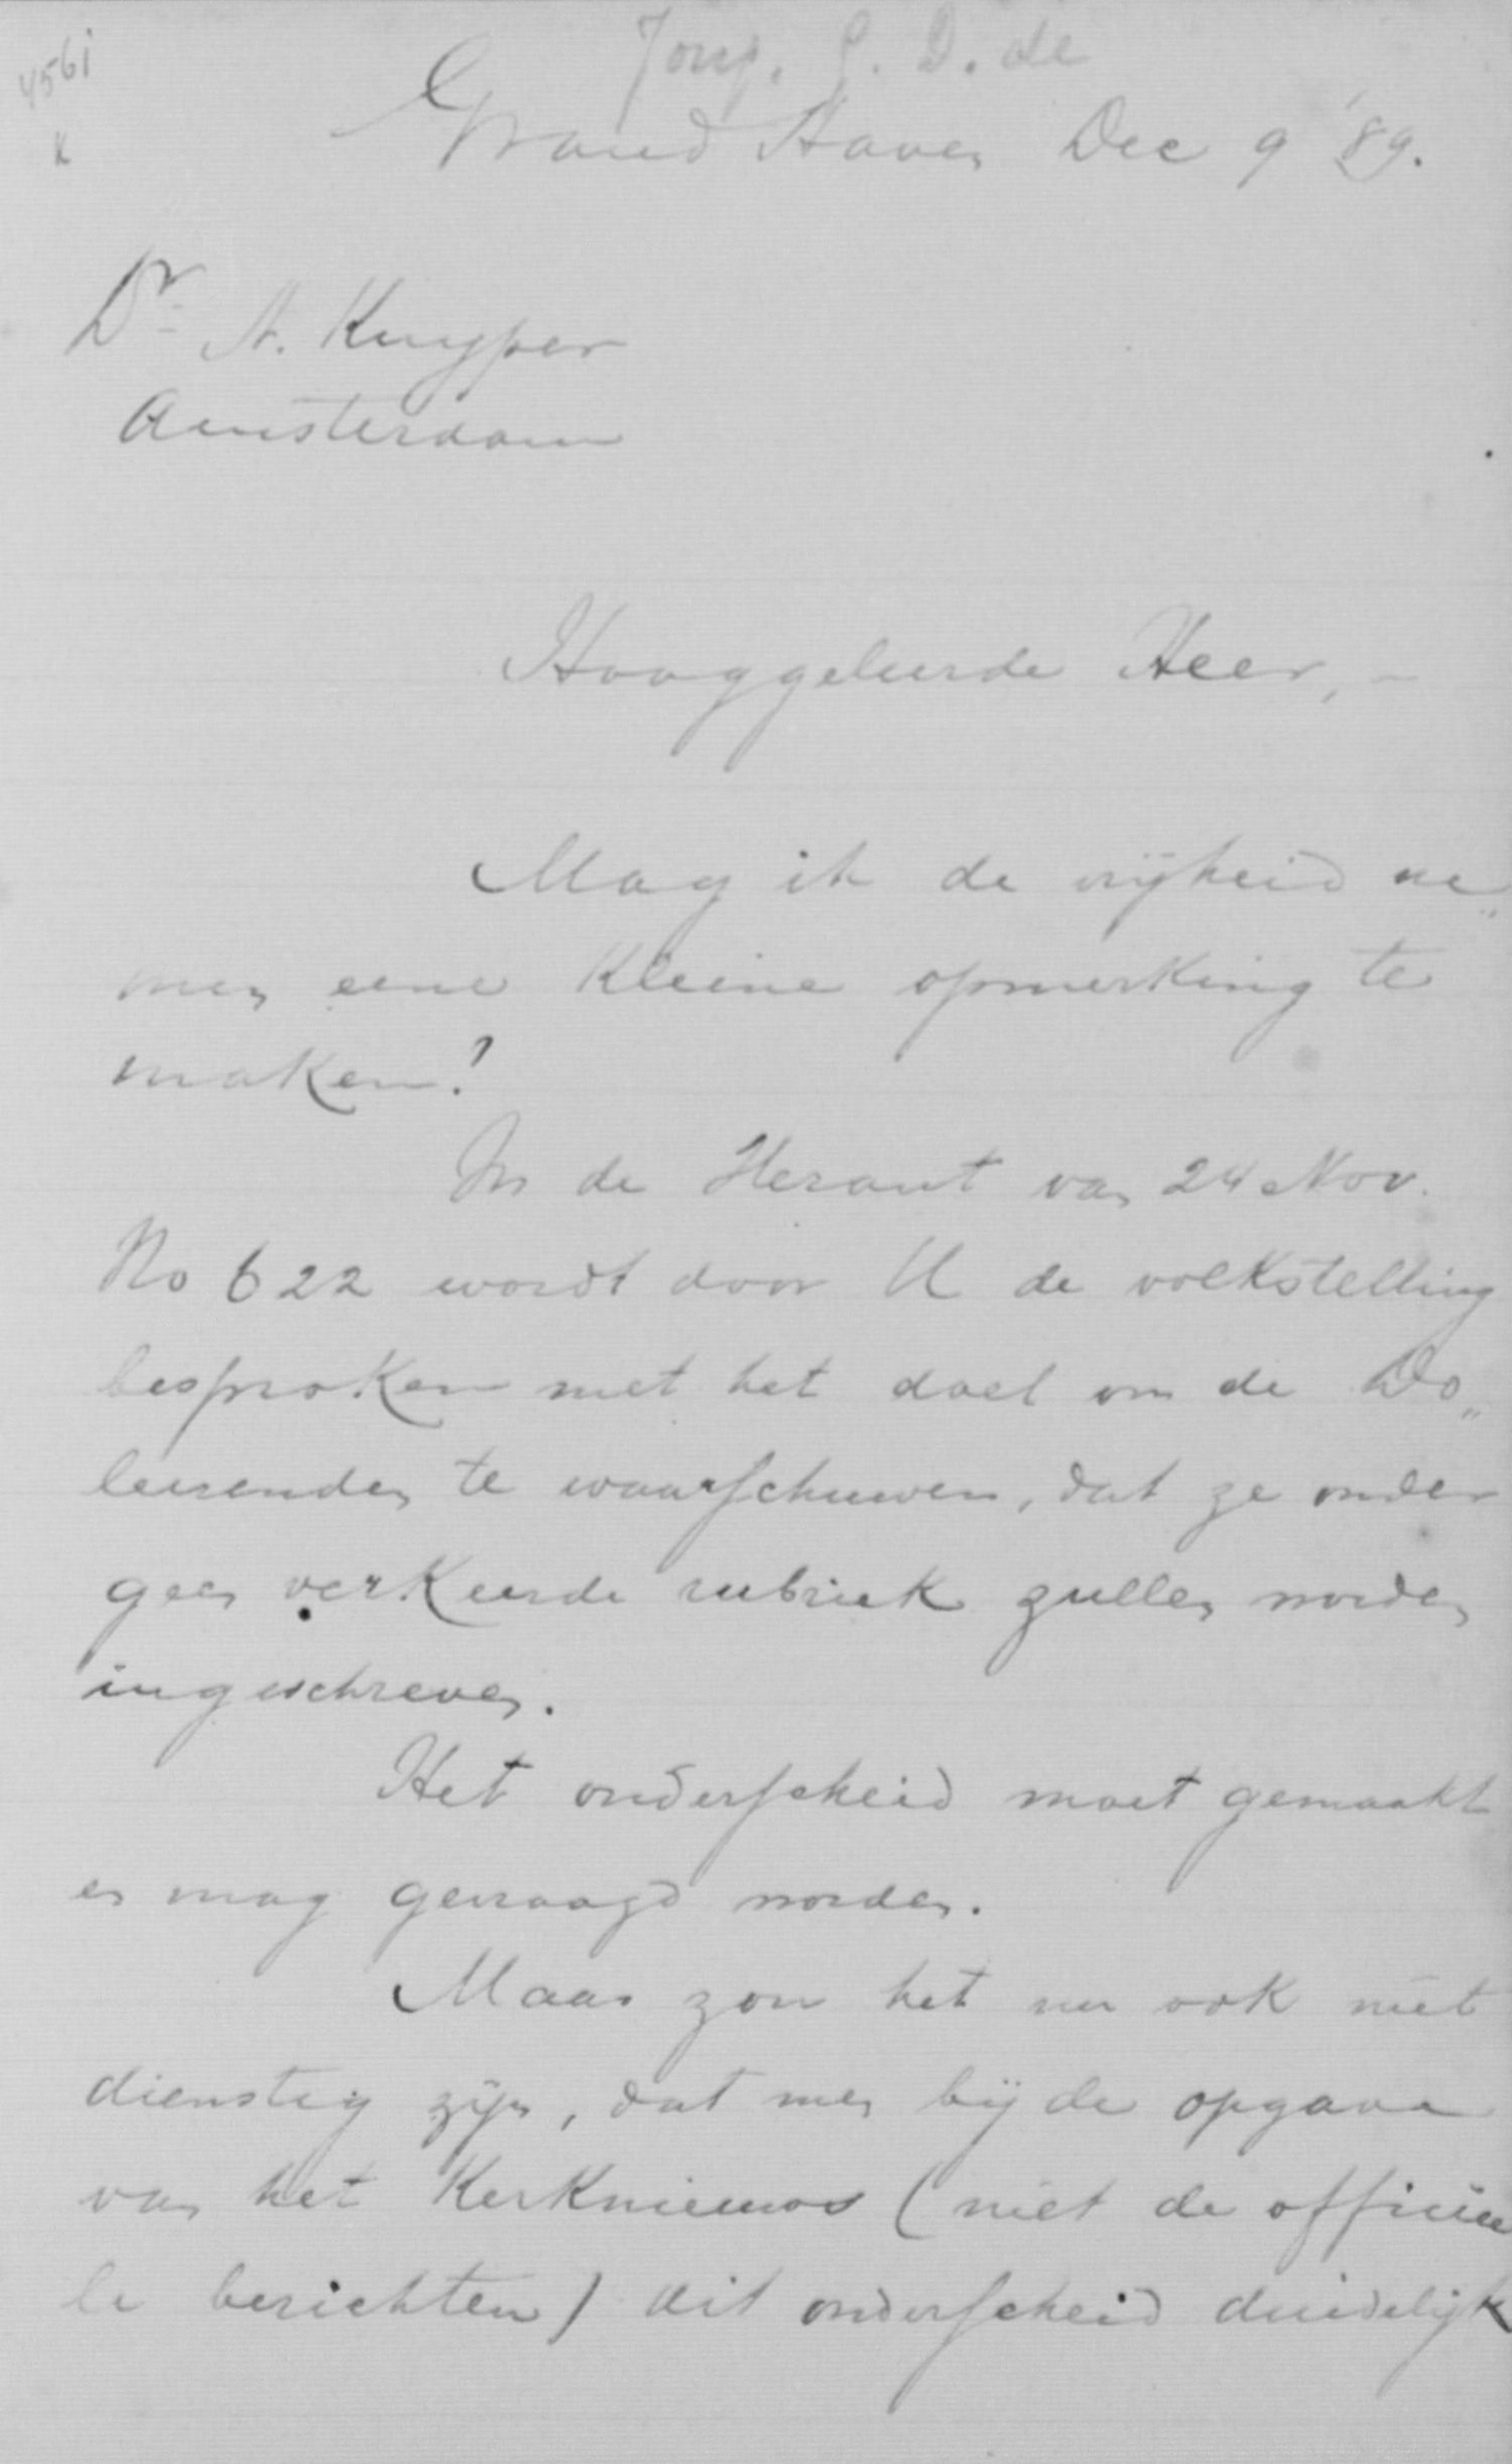 4561
K
Jong. G. D. de
Grand Haven Dec 9 '89.
Dr. A. Kuyper
Amsterdam
Hooggeleerde Heer, -
Mag ik de vrijheid ne„
men eene kleine opmerking te
maken?
In de Heraut van 24 Nov.
No 622 wordt door U de volkstelling
besproken met het doel om de Do„
leerenden te waarschuwen, dat ze onder
geen verkeerde rubriek zullen worden
ingeschreven.
Het onderscheid moet gemaakt
en mag gevraagd worden.
Maar zou het nu ook niet
dienstig zijn, dat men bij de opgave
van het Kerknieuws (niet de officiëe
le berichten) dit onderscheid duidelijk